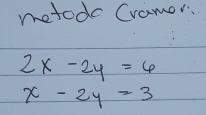 metoda Cramer:
2x - 2y = 6
x - 2y = 3